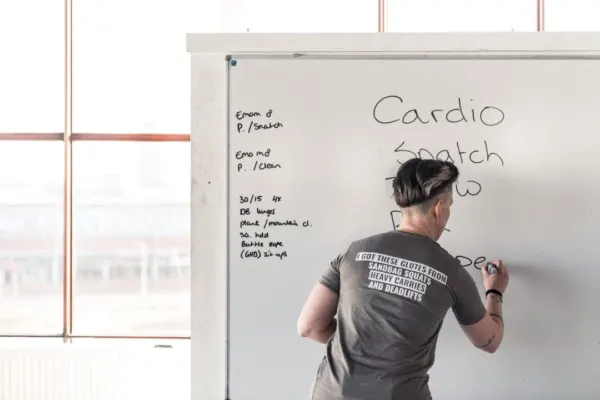 Emom 8
P. /Snatch
Emom 8
P. /Clean
30/15 4x
DB lunges
plank /mountain cl.
Sq. hold
Battle rope
(GHD) sit-ups
Cardio
Snatch
I GOT THESE GLUTES FROM
SANDBAG SQUATS
HEAVY CARRIES
AND DEADLIFTS